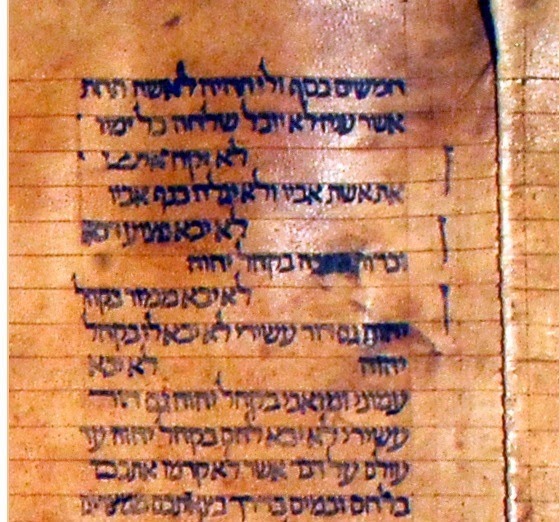 חמשים כסף ולו תהיה לאשה תחת
אשר ענה לא יוכל שלחה כל ימיו
לא יקח איש
את אשת אביו ולא יגלה כנף אביו
לא יבא פצוע דכא
וכרות בקהל יהוה
לא יבא ממזר בקהל
יהוה גם דור עשירי לא יבא לו בקהל
יהוה לא יבא
עמוני ומואבי בקהל יהוה גם דור
עשירי לא יבא להם בקהל יהוה עד
עולם על דבר אשר לא קדמו אתכם
בלחם ובמים בדרך בצאתכם ממצרים